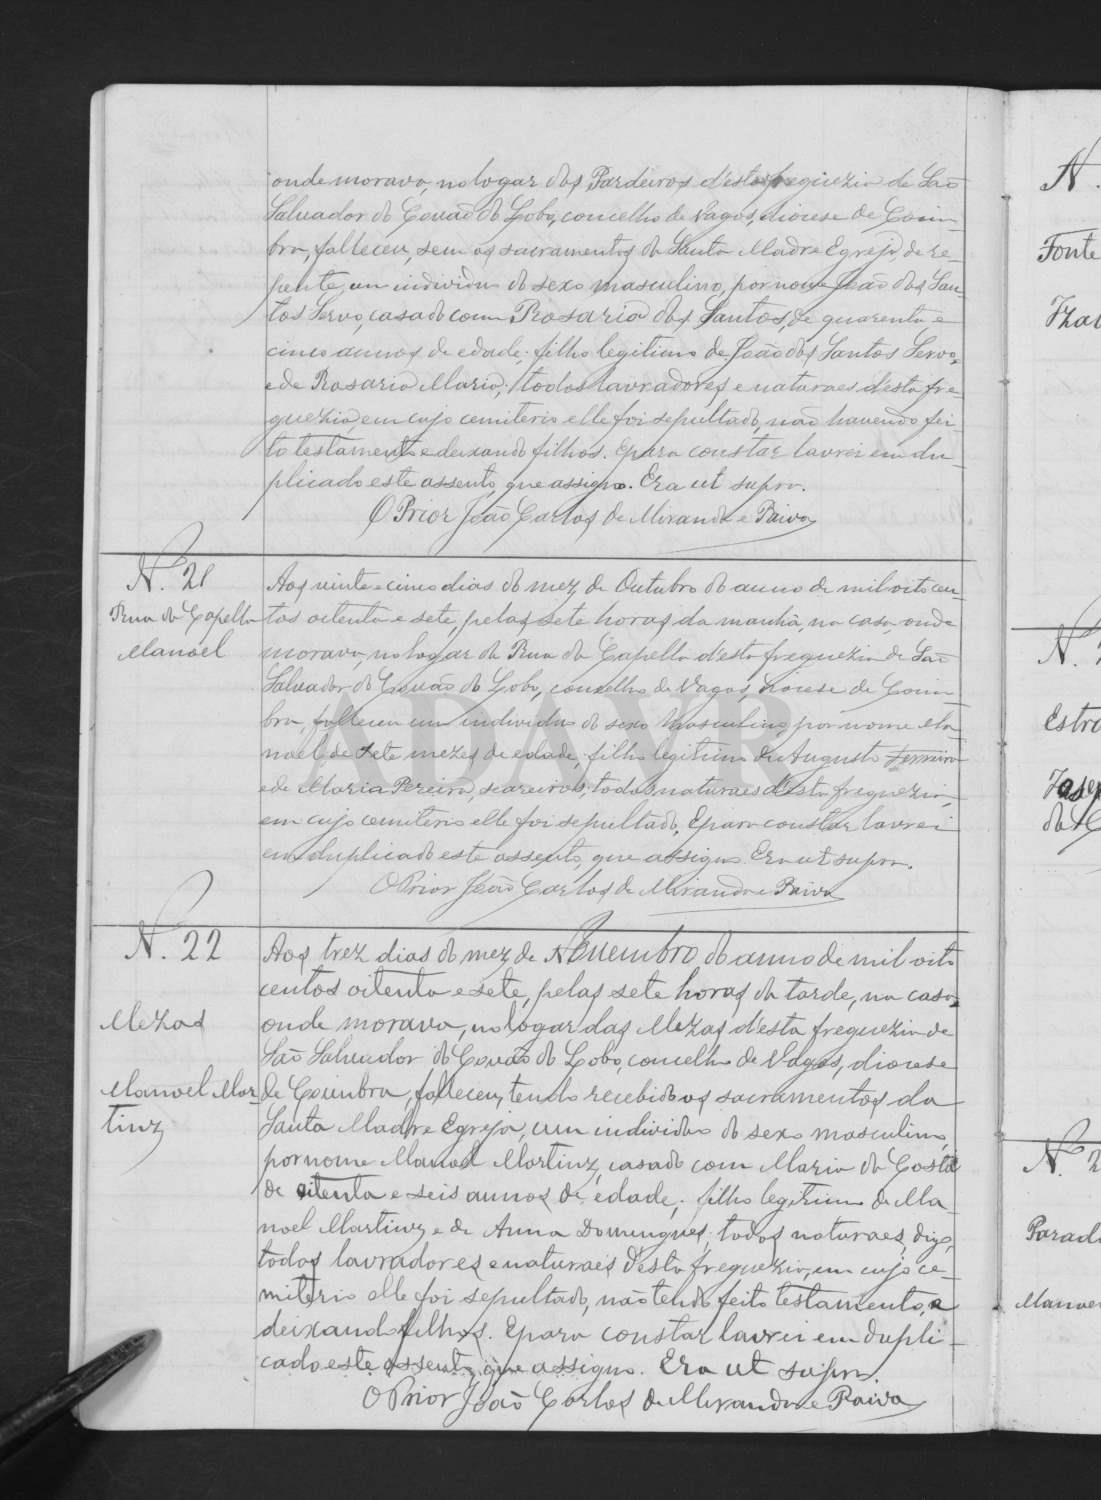 onde morava, no logar dos Pardeiros d'esta freguezia de São
Salvador do Covão do Lobo, concelho de Vagos, diocese de Coim-
bra, falleceu, sem os sacramentos da Santa Madre Egreja, de re-
pente, um individuo do sexo masculino, por nome João dos San-
tos Servo, casado com Rosaria dos Santos, de quarenta e
cinco annos de edade; filho legitimo de João dos Santos Servo,
e de Rosaria Maria; todos lavradores e naturaes d'esta fre-
guezia, em cujo cemiterio elle foi sepultado, não havendo fei-
to testamento e deixando filhos. E para constar lavrei em du-
plicado este assento, que assigno. Era ut supra.
O Prior João Carlos de Miranda e Paiva
N. 21
Rua da Capella
Manoel
Aos vinte e cinco dias do mez de Outubro do anno de mil oito cen-
tos oitenta e sete, pelas sete horas da manhã, na casa, onde
morava, no logar da Rua da Capella d'esta freguezia de São
Salvador do Covão do Lobo, concelho de Vagos, diocese de Coim-
bra, falleceu um individuo do sexo masculino, por nome Ma-
noel de sete mezes de edade; filho legitimo de Augusto Ferreira
e de Maria Pereira, seareiros, todos naturaes d'esta freguezia,
em cujo cemiterio elle foi sepultado. E para constar lavrei
em duplicado este assento, que assigno. Era ut supra.
O Prior João Carlos de Miranda e Paiva
N. 22
Mezas
Manoel Mar-
tinz
Aos trez dias do mez de Novembro do anno de mil oito
centos oitenta e sete, pelas sete horas da tarde, na casa,
onde morava, no logar das Mezas d'esta freguezia de
São Salvador do Covão do Lobo, concelho de Vagos, diocese
de Coimbra, falleceu, tendo recebido os sacramentos da
Santa Madre Egreja, um individuo do sexo masculino,
por nome Manoel Martinz, casado com Maria da Costa
de oitenta e seis annos de edade; filho legitimo de Ma-
noel Martinz e de Anna Domingues; todos naturaes, digo,
todos lavradores e naturaes d'esta freguezia, em cujo ce-
miterio elle foi sepultado, não tendo feito testamento, e
deixando filhos. E para constar lavrei em dupli-
cado este assento, que assigno. Era ut supra.
O Prior João Carlos de Miranda e Paiva
ADAVR
N.
Fonte
N.
Estra
N. 2
Parad
Manoe